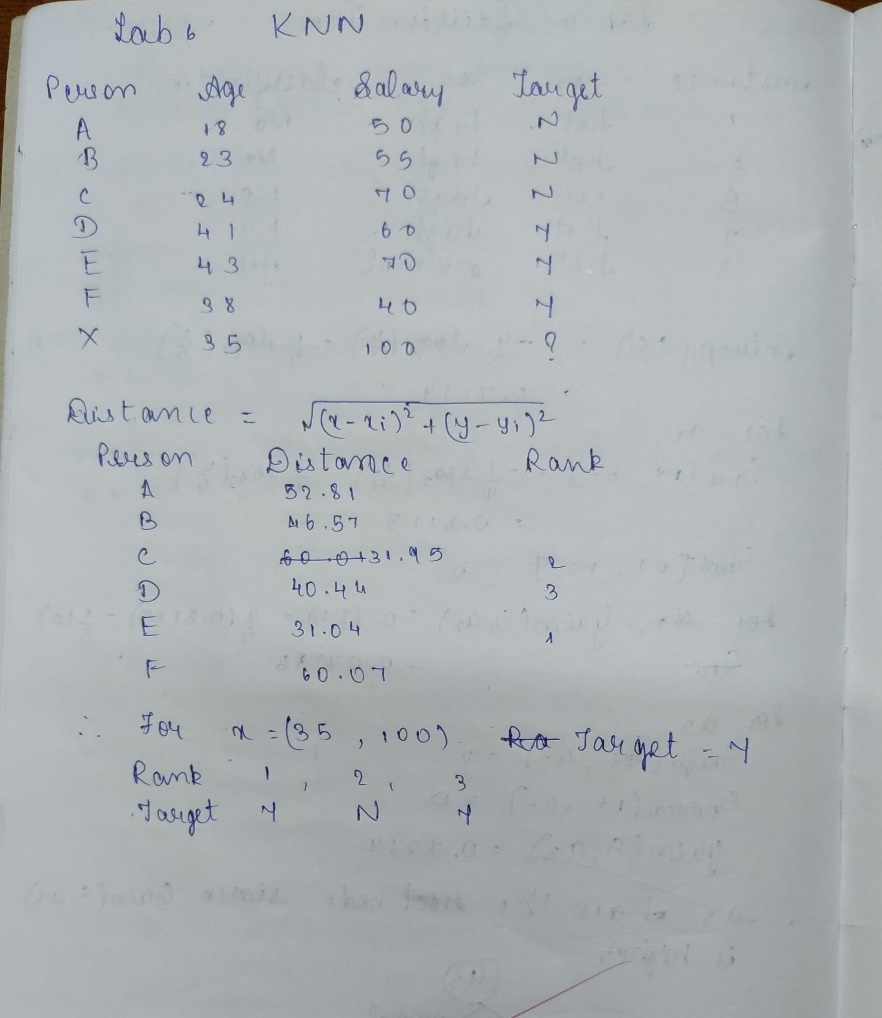 Lab 6 KNN
Person Age Salary Target
A 18 50 N
B 23 55 N
C 24 70 N
D 41 60 Y
E 43 70 Y
F 38 40 Y
X 35 100 ?
Distance = √(x-xi)² + (y-yi)²
Person Distance Rank
A 52.81
B 46.57
C 60.0 31.95 2
D 40.44 3
E 31.04 1
F 60.07
∴ For x = (35, 100) Ra Target = Y
Rank 1, 2, 3
Target Y N Y